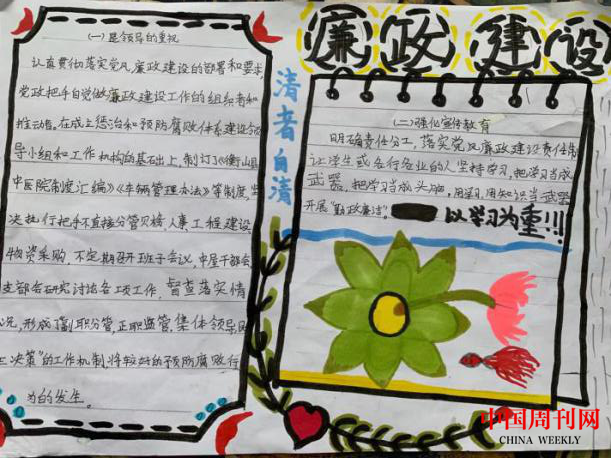 廉政建设
(一)是领导的重视
认真贯彻落实党风廉政建设的部署和要求,
党政把手自觉做廉政建设工作的组织者和
推动者。在成立惩治和预防腐败体系建设领
导小组和工作机构的基础上,制订了《衡山县
中医院制度汇编》《车辆管理办法》等制度,坚
决执行把手不直接分管贝榜、人事、工程建设
物资采购,不定期召开班子会议,中层干部会
支部会研究讨论各项工作,督查落实情
况,形成“副职分管,正职监管,集体领导民
主决策”的工作机制,将较好的预防腐败行
为的发生。
清者自清
(二)强化宣传教育
明确责任分工,落实党风廉政建设责任制
让学生或各行各业的人坚持学习,把学习当成
武器,把学习当成头脑,用学习用知识当武器
开展“勤政廉洁”。
以学习为重!!!
中国周刊网
CHINA WEEKLY